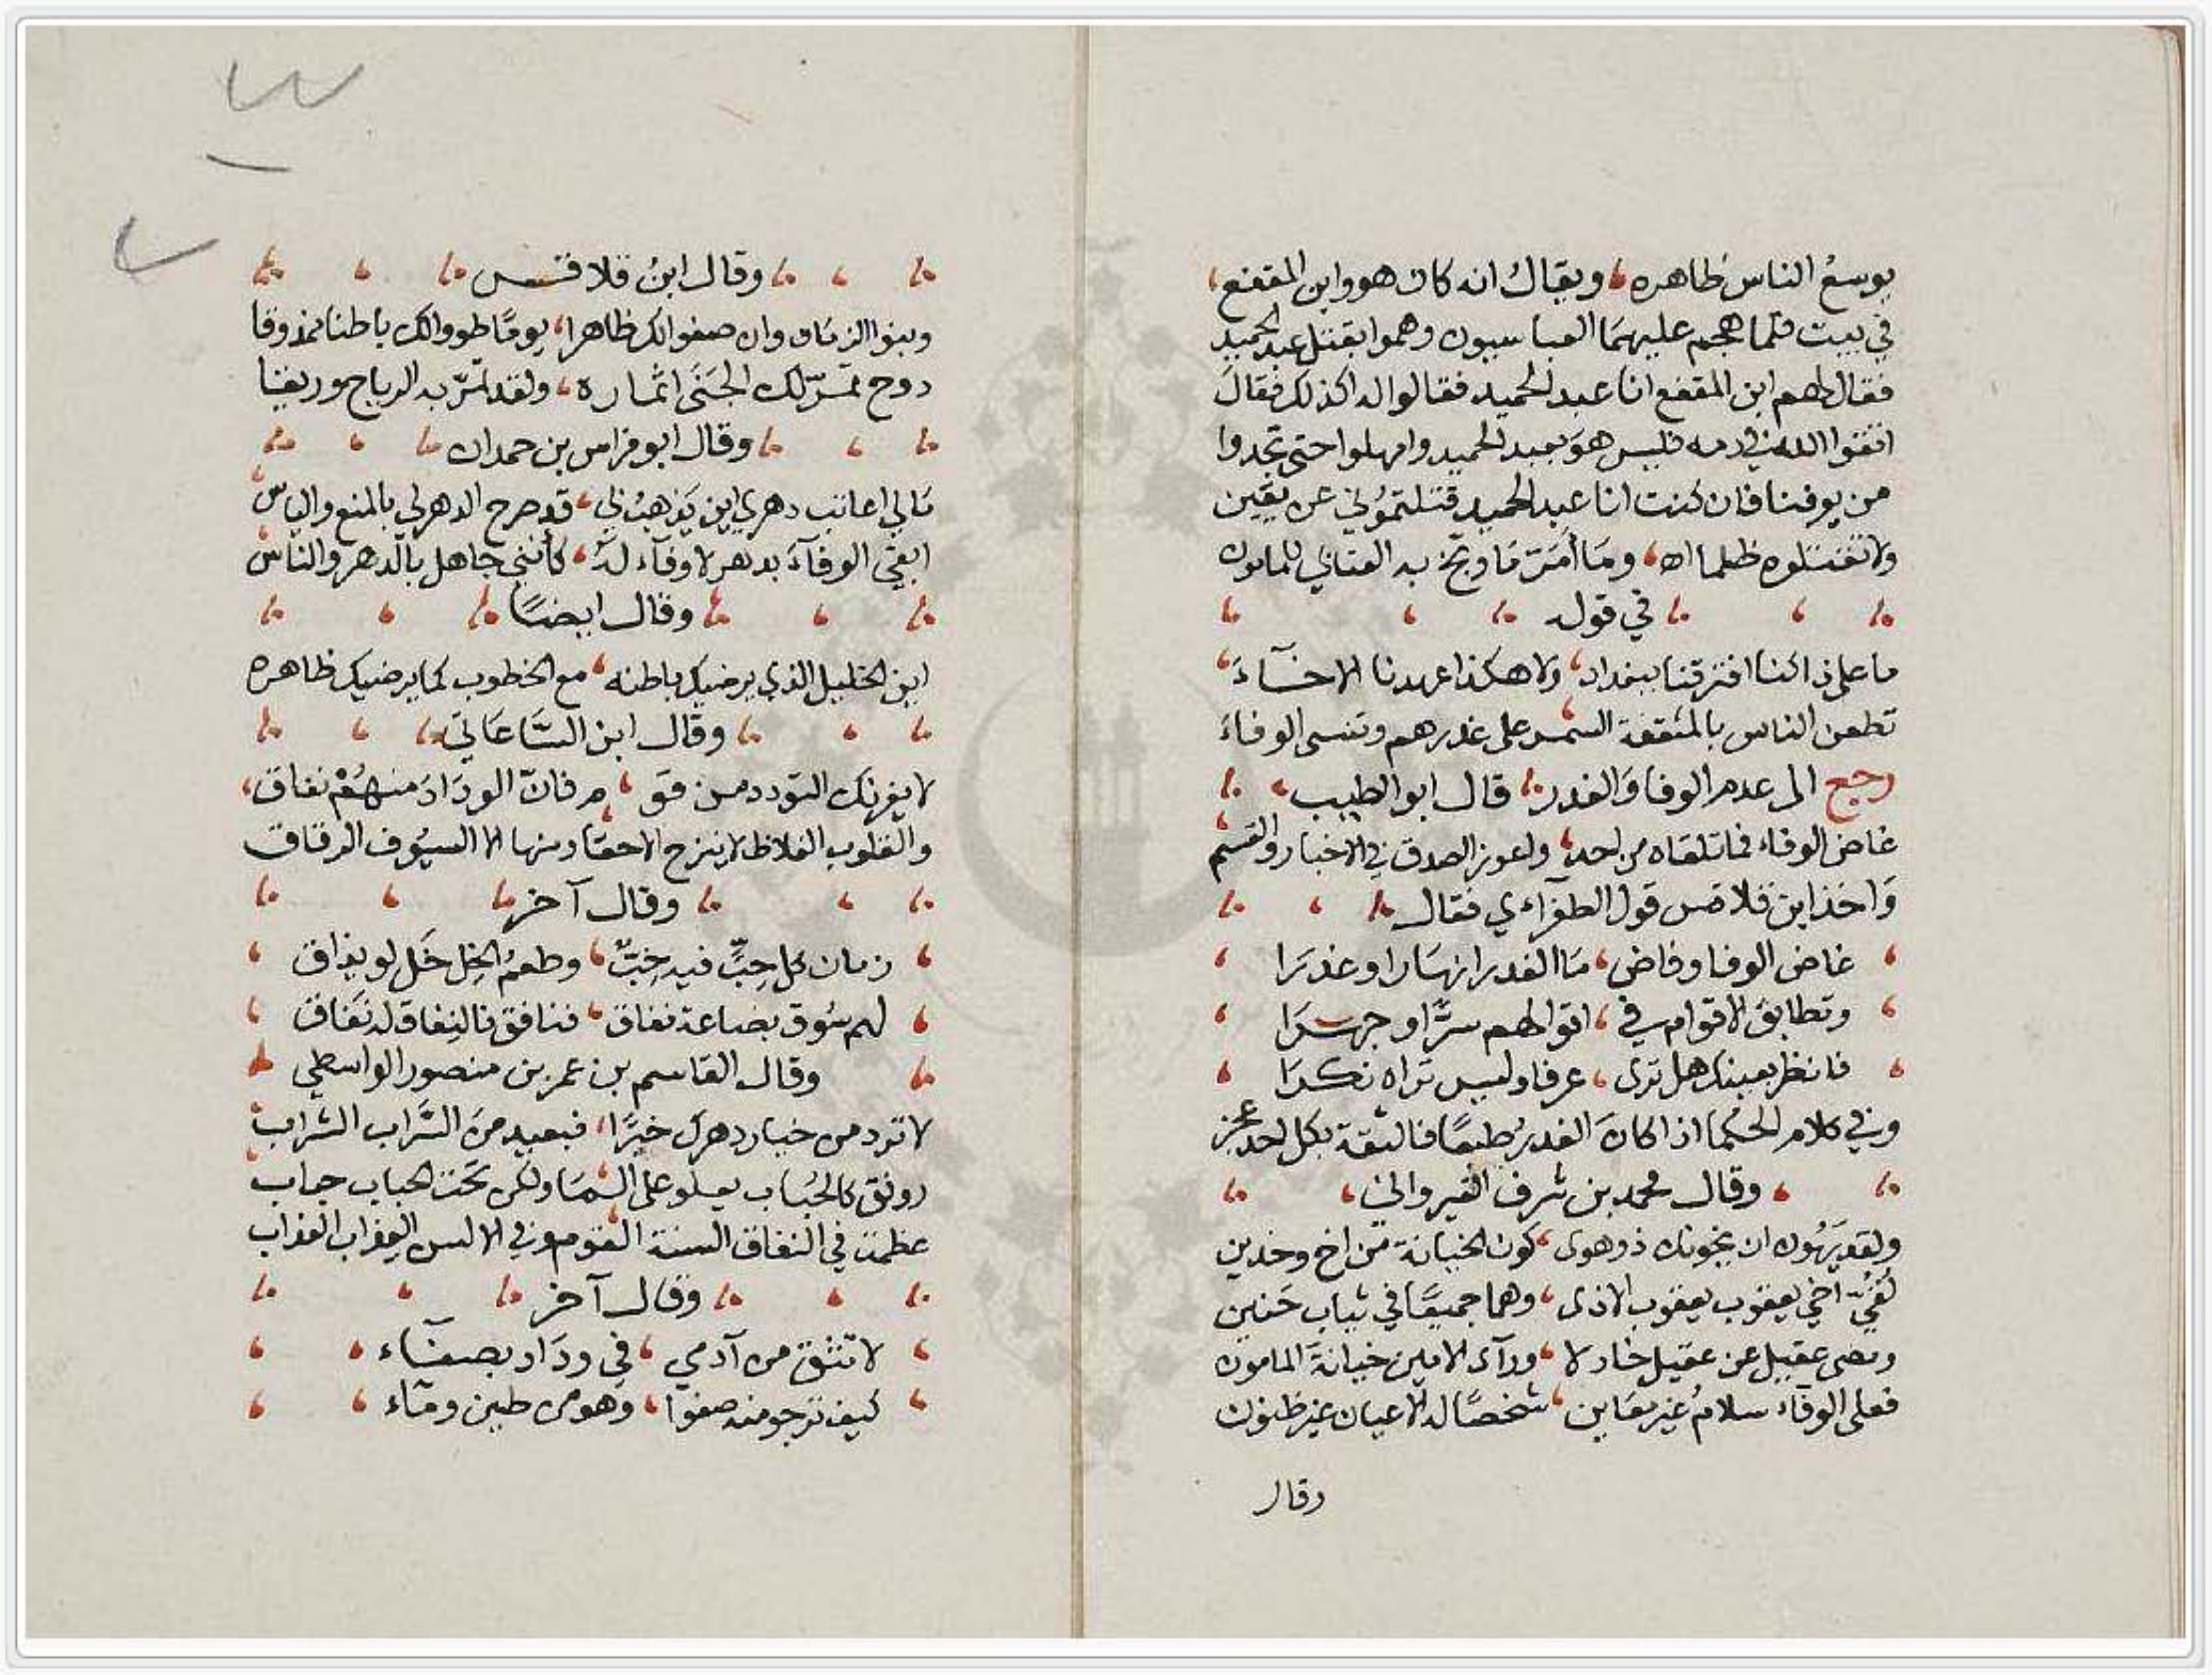 يوسعُ الناس ظاهره، ويقالُ انه كان هو وابن المقفع،
في بيت فلما هجم عليهمَا العباسيون وهموا بقتل عبد الحميد
فقال لهم ابن المقفع انا عبد الحميد فقالوا له اكذلك فقالَ
اتقوا الله في دمه فليس هوَ بعبد الحميد وامهلوا حتى تجدوا
من يوفنا فان كنت انا عبد الحميد قتلتموُني عن يقين
ولا تقتلوه ظلما اه، ومَا أمَرّ مَا وبّخ به العتابي للمامون
في قوله
ما على ذا كنا افترقنا ببغداد، ولا هكذا عهدنا الاخآءَ
تطعن الناس بالمثقفة السمر على غدرهم وتنسى الوفاءَ
رجع الى عدم الوفا وَالغدر، قال ابو الطيب،
غاض الوفاء فما تلقاه من احد، واعوز الصدق في الاخبار والقسم
وَاخذ ابن قلاقس قول الطغرآءي فقال
غاض الوفا وفاض، مَا الغدر انهَارا وغدرَا
وتطابق الاقوام في، اقوالهم سرًّا وجهرَا
فانظر بعينك هل ترى، عرفا وليس تراه نكرَا
وفي كلام الحكما اذا كانَ الغدرُ طبعًا فالثقة بكل احد عجز
وقال محمد بن شرف القيرواني،
ولقد يَهُون ان يخونك ذو هوى، كون الخيانة من اخ وخدين
لقيَ اخي يعقوب يعقوب الاذى، وهما جميعًا في ثياب جَنين
ومضى عقيل عن عقيل خاذلا، ورآى الامين خيانةَ المامون
فعلى الوفآء سلامُ غير معَاين، شخصًا له الاعيان غير ظنون
وقال
وقال ابنُ قلاقس
وبنوا الزمَان وان صفوا لك ظاهرا، يومًا طووا لك باطنا ممذوقا
دوح تمرّ لك الجَنَى اثماره، ولقد تمرّ به الرياح وريقا
وقال ابو فراس بن حمدان
مَا لي اعاتب دهري اين يَذهبُ بي، قد صرح الدهر لي بالمنع والياس
ابغي الوفآءَ بدهر لا وفآء لهُ، كأنني جاهل بالدهر والناس
وقال ايضًا
اين الخليل الذي يرضيك باطنه، مع الخطوب كما يرضيك ظاهره
وقال ابن السَّاعَاتي
لا يغرنك التودد من قو، م فانّ الودَادَ منهُمْ نفاق،
والقلوب الغلاظ لا ينزح الاحقاد منها الا السيُوف الرقاق
وقال آخر
زمان كل حِبٍّ فيه خِبٌّ، وطعمُ الخِل خَل لو يذاق
لهم سُوق بضاعة نفاق، فنافق فالنِفاق له نَفاق
وقال القاسم بن عمر بن منصور الواسطي
لا ترد من خيار دهرك خيرًا، فبعيد منَ السَّراب الشراب
رونق كالحُباب يعلو على المَا ولكن تحت الحباب حباب
عظمت في النفاق السنة القوم وفي الالسن العِذاب العَذاب
وقال آخر
لا تثق من آدمي، في ودَاد بصفآء
كيف ترجو منه صفوًا، وَهو من طين ومَآء